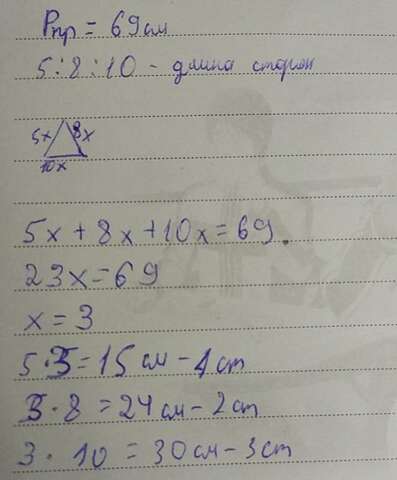 Pпр = 69см
5:8:10 - длина сторон
5x 8x
10x
5x + 8x + 10x = 69.
23x = 69
x = 3
5 · 3 = 15 см - 1 ст
3 · 8 = 24 см - 2 ст
3 · 10 = 30 см - 3 ст